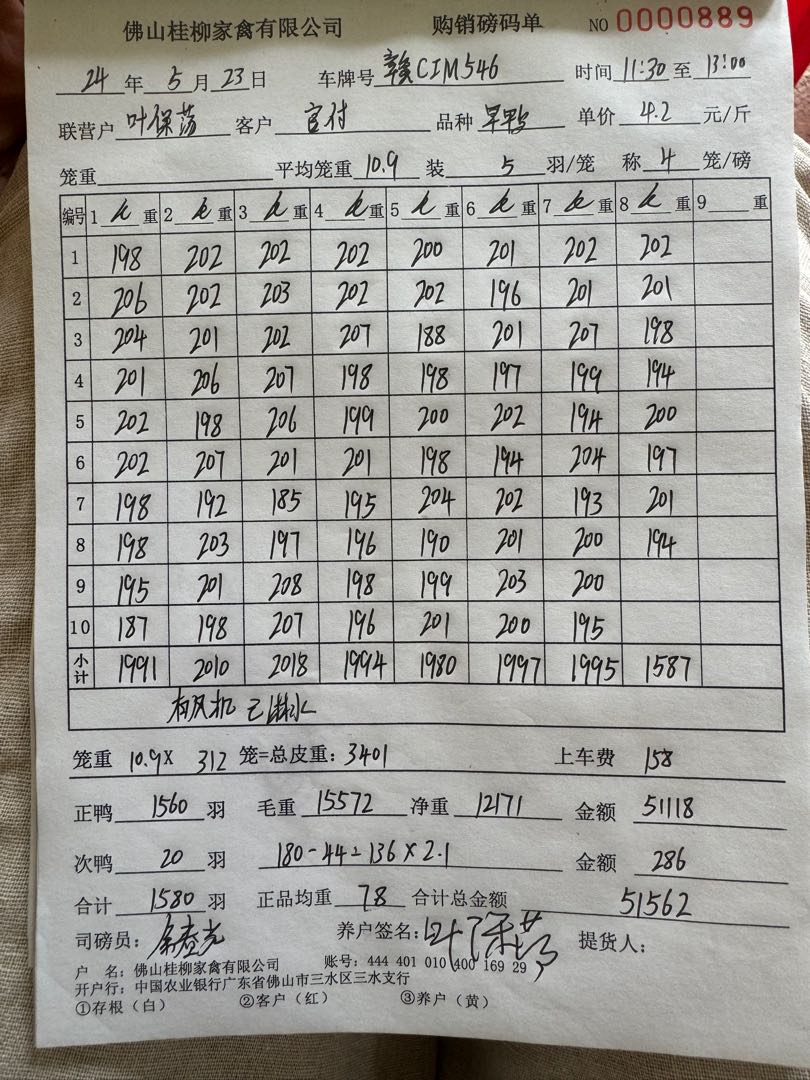 佛山桂柳家禽有限公司 购销磅码单 NO 0000889
24 年 5 月 23 日 车牌号 赣CIM546 时间 11:30 至 13:00
联营户 叶保荡 客户 官付 品种 旱鸭 单价 4.2 元/斤
笼重 平均笼重 10.9 装 5 羽/笼 称 4 笼/磅
编号 1 重 2 重 3 重 4 重 5 重 6 重 7 重 8 重 9 重
1 198 202 202 202 200 201 202 202
2 206 202 203 202 202 196 201 201
3 204 201 202 207 188 201 207 198
4 201 206 207 198 198 197 199 194
5 202 198 206 199 200 202 194 200
6 202 207 201 201 198 194 204 197
7 198 192 185 195 204 202 193 201
8 198 203 197 196 190 201 200 194
9 195 201 208 198 199 203 200
10 187 198 207 196 201 200 195
小计 1991 2010 2018 1994 1980 1997 1995 1587
有风机 已淋水
笼重 10.9 X 312 笼=总皮重: 3401 上车费 158
正鸭 1560 羽 毛重 15572 净重 12171 金额 51118
次鸭 20 羽 180-44=136×2.1 金额 286
合计 1580 羽 正品均重 7.8 合计总金额 51562
司磅员: 养户签名: 叶保荡 提货人:
户 名: 佛山桂柳家禽有限公司 账号: 444 401 010 400 169 29
开户行: 中国农业银行广东省佛山市三水区三水支行
①存根（白） ②客户（红） ③养户（黄）